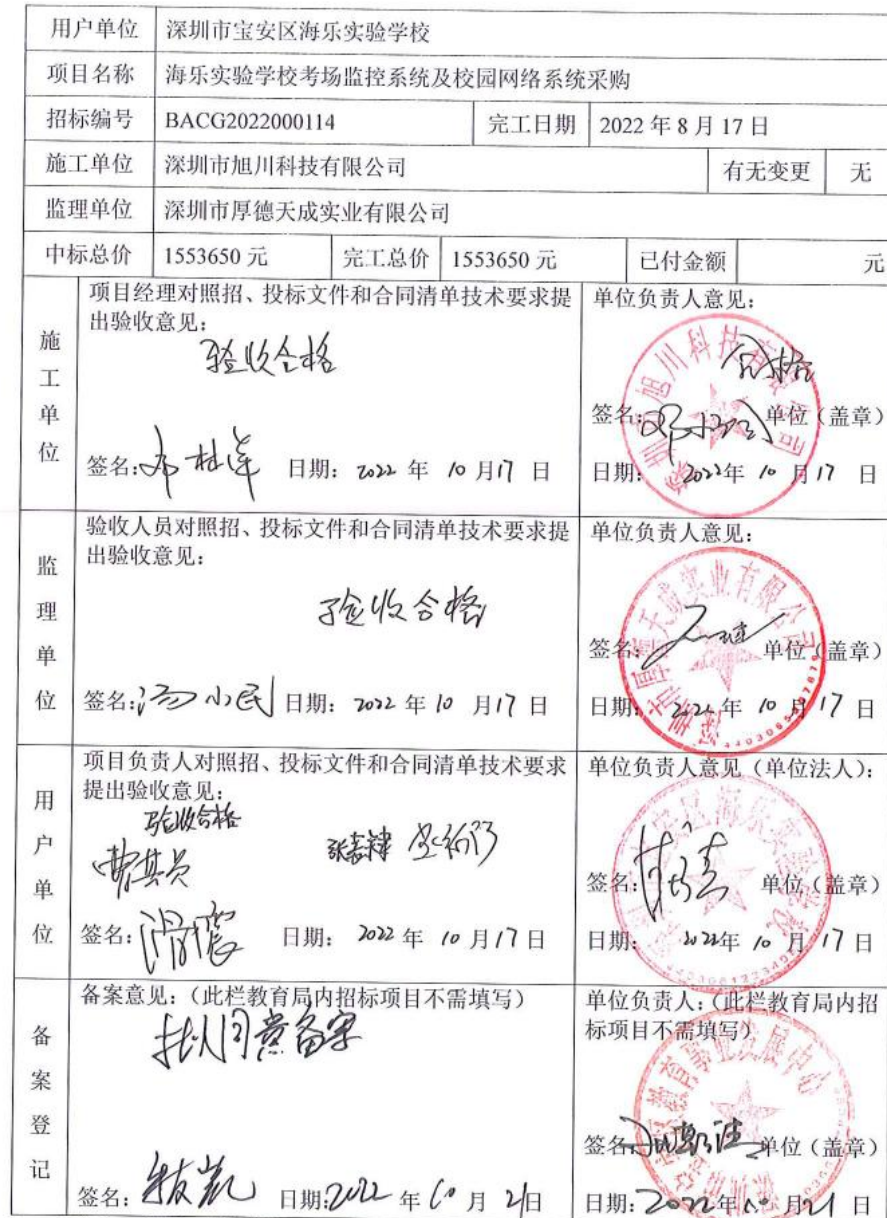 用户单位 深圳市宝安区海乐实验学校
项目名称 海乐实验学校考场监控系统及校园网络系统采购
招标编号 BACG2022000114 完工日期 2022年8月17日
施工单位 深圳市旭川科技有限公司 有无变更 无
监理单位 深圳市厚德天成实业有限公司
中标总价 1553650元 完工总价 1553650元 已付金额 元
施工单位
项目经理对照招、投标文件和合同清单技术要求提
出验收意见:
验收合格
签名: 日期: 2022年10月17日
单位负责人意见:
合格
签名: 单位(盖章)
日期: 2022年10月17日
监理单位
验收人员对照招、投标文件和合同清单技术要求提
出验收意见:
验收合格
签名:汤小民 日期: 2022年10月17日
单位负责人意见:
签名: 单位(盖章)
日期: 2022年10月17日
用户单位
项目负责人对照招、投标文件和合同清单技术要求
提出验收意见:
验收合格
签名: 日期: 2022年10月17日
单位负责人意见(单位法人):
签名: 单位(盖章)
日期: 2022年10月17日
备案登记
备案意见:(此栏教育局内招标项目不需填写)
同意备案
签名: 日期:2022年10月21日
单位负责人:(此栏教育局内招
标项目不需填写)
签名: 单位(盖章)
日期:2022年10月21日